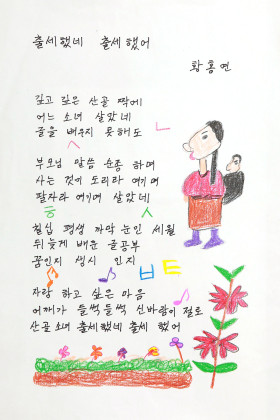 출세했네 출세 했어
황홍연
깊고 깊은 산골 짝에
어느 소녀 살았네
글을 배우지 못해도
ㄴ
ㅅ
부모님 말씀 순종 하며
사는 것이 도리라 여기며
팔자라 여기며 살았네
ㅎ ㅅ
칠십 평생 까막 눈인 세월
뒤늦게 배운 글공부
꿈인지 생시 인지
ㅂ ㅌ
자랑 하고 싶은 마음
어깨가 들썩 들썩 신바람이 절로
산골 소녀 출세했네 출세 했어